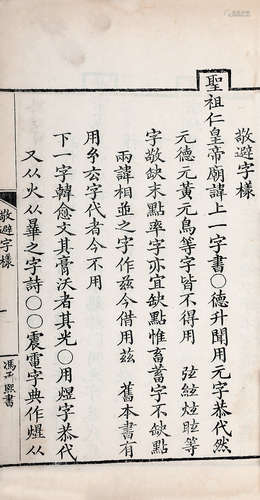 敬避字樣
聖祖仁皇帝廟諱上一字書〇德升聞用元字恭代然
元德元黃元鳥等字皆不得用　弦絃炫眩等
字敬缺末點率字亦宜缺點惟畜蓄字不缺點
兩諱相並之字作茲今借用兹　舊本書有
用糸厺字代者今不用
下一字韓愈文其膏沃者其光〇用煜字恭代
又从火从畢之字詩〇〇震電字典作爗从
敬避字樣
馮
熙書